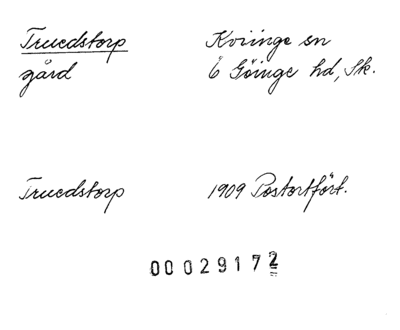 Truedstorp Kviinge sn
gård Ö Göinge hd, Sk.
Truedstorp 1909 Postortfört.
00029172